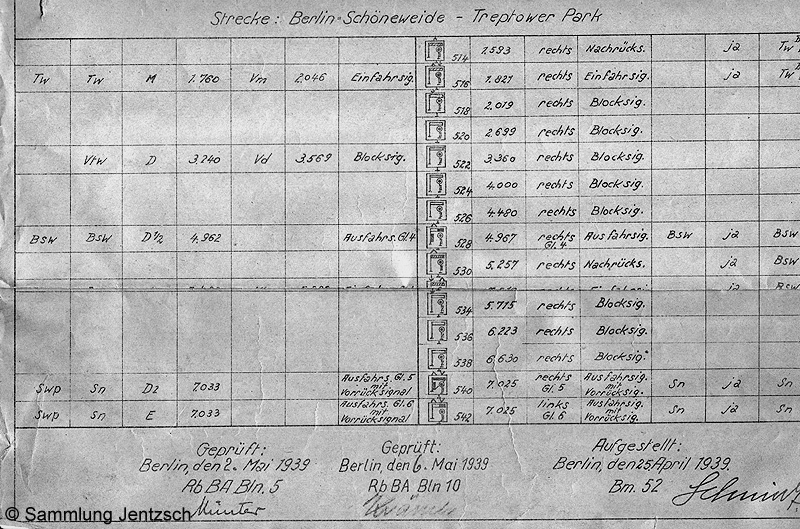 Strecke: Berlin-Schöneweide - Treptower Park
514 1.593 rechts Nachrücks. ja Tw
Tw Tw M 1.760 Vm 2.046 Einfahrsig. 516 1.821 rechts Einfahrsig. ja Tw
518 2.019 rechts Blocksig.
520 2.699 rechts Blocksig.
Vtw D 3.240 Vd 3.569 Blocksig. 522 3.360 rechts Blocksig.
524 4.000 rechts Blocksig.
526 4.480 rechts Blocksig.
Bsw Bsw D1/2 4.962 Ausfahrs. Gl.4 528 4.967 rechts Gl. 4 Ausfahrsig. Bsw ja Bsw
530 5.257 rechts Nachrücks. ja Bsw
534 5.715 rechts Blocksig.
536 6.223 rechts Blocksig.
538 6.630 rechts Blocksig.
Swp Sn D2 7.033 Ausfahrs. Gl. 5 mit Vorrücksignal 540 7.025 rechts Gl. 5 Ausfahrsig. mit Vorrücksig. Sn ja Sn
Swp Sn E 7.033 Ausfahrs. Gl. 6 mit Vorrücksignal 542 7.025 links Gl. 6 Ausfahrsig. mit Vorrücksig. Sn ja Sn
Geprüft: Geprüft: Aufgestellt:
Berlin, den 2. Mai 1939 Berlin, den 6. Mai 1939 Berlin, den 25 April 1939.
Rb BA Bln. 5 Rb BA Bln 10 Bm. 52
Münter
© Sammlung Jentzsch